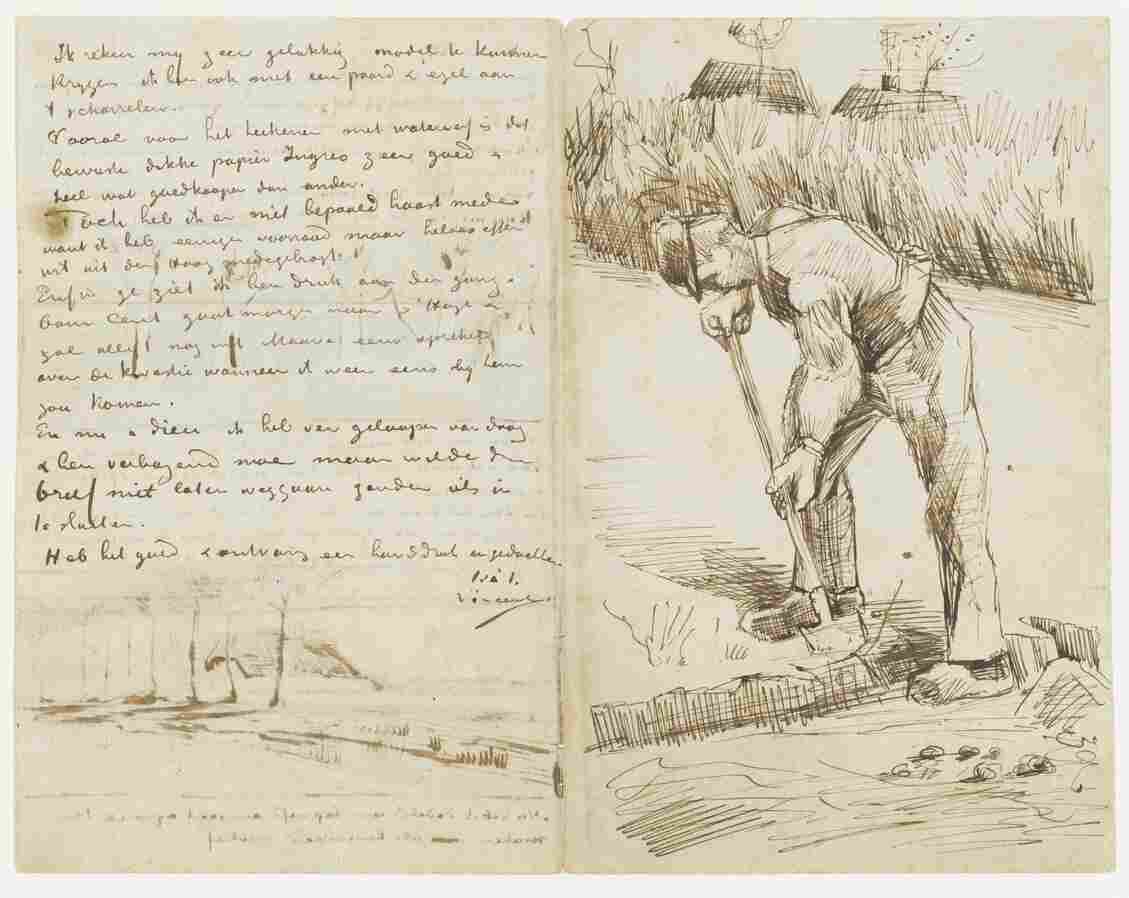 Ik reken my zeer gelukkig model te kunnen
krygen ik ben ook met een paard & ezel aan
't scharrelen.
Vooral voor het teekenen met waterverf is dat
bewuste dikke papier Ingres zeer goed &
heel wat goedkooper dan ander.
Toch heb ik er niet bepaald haast mede
want ik heb eenigen voorraad maar helaas effen
wit uit den Haag medegebragt.
Enfin ge ziet ik ben druk aan den gang.
Oom Cent gaat morgen naar s' Hage &
zal alligt nog met Mauve eens spreken
over de kwestie wanneer ik weer eens by hem
zou komen.
En nu adieu ik heb ver geloopen van daag
& ben verbazend moe maar wilde den
brief niet laten weggaan zonder iets in
te sluiten.
Heb het goed & ontvang een handdruk in gedachten
t. à t.
Vincent